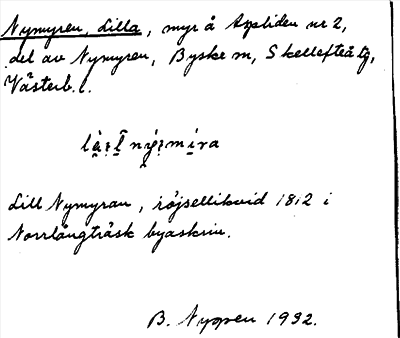 Nymyren, Lilla, myr å Axliden nr 2,
del av Nymyren, Byske sn, Skellefteå tg,
Västerb. l.
Lill Nymyran, röjselliqvid 1812 i
Norrlångträsk byaskrin.
B. Nyman 1932.